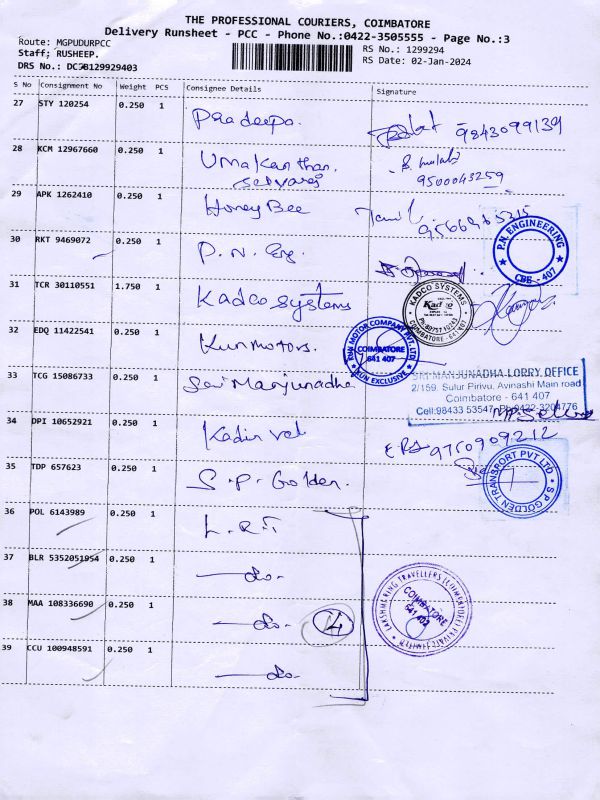 THE PROFESSIONAL COURIERS, COIMBATORE
Delivery Runsheet - PCC - Phone No.:0422-3505555 - Page No.:3
Route: MGPUDURPCC
RS No.: 1299294
Staff; RUSHEEP.
RS Date: 02-Jan-2024
DRS No.: DC2B129929403
S No Consignment No Weight PCS Consignee Details Signature
27 STY 120254 0.250 1 Pradeepa. 9843099139
28 KCM 12967660 0.250 1 Umakanthan
9500043259
29 APK 1262410 0.250 1 Honey Bee Tamil
30 RKT 9469072 0.250 1 P.N. Eng.
P.N. ENGINEERING
CBE - 407
31 TCR 30110551 1.750 1 Kadco Systems
KADCO SYSTEMS
COIMBATORE - 641 407
32 EDQ 11422541 0.250 1 Kun Motors.
KUN MOTOR COMPANY PVT. LTD
COIMBATORE
641 407
KUN EXCLUSIVE
33 TCG 15086733 0.250 1 Sri Manjunadha
SRI MANJUNADHA LORRY OFFICE
2/159, Sulur Pirivu, Avinashi Main road
Coimbatore - 641 407
Cell:98433 53547, Ph:0422-3204776
34 DPI 10652921 0.250 1 Kadir vel
9750909212
35 TDP 657623 0.250 1 S.P. Golden.
S.P GOLDEN TRANSPORT PVT LTD
36 POL 6143989 0.250 1 L.R.T
37 BLR 5352051954 0.250 1 —do-
38 MAA 108336690 0.250 1 —do- 4
COIMBATORE
641 402
39 CCU 100948591 0.250 1 —do-